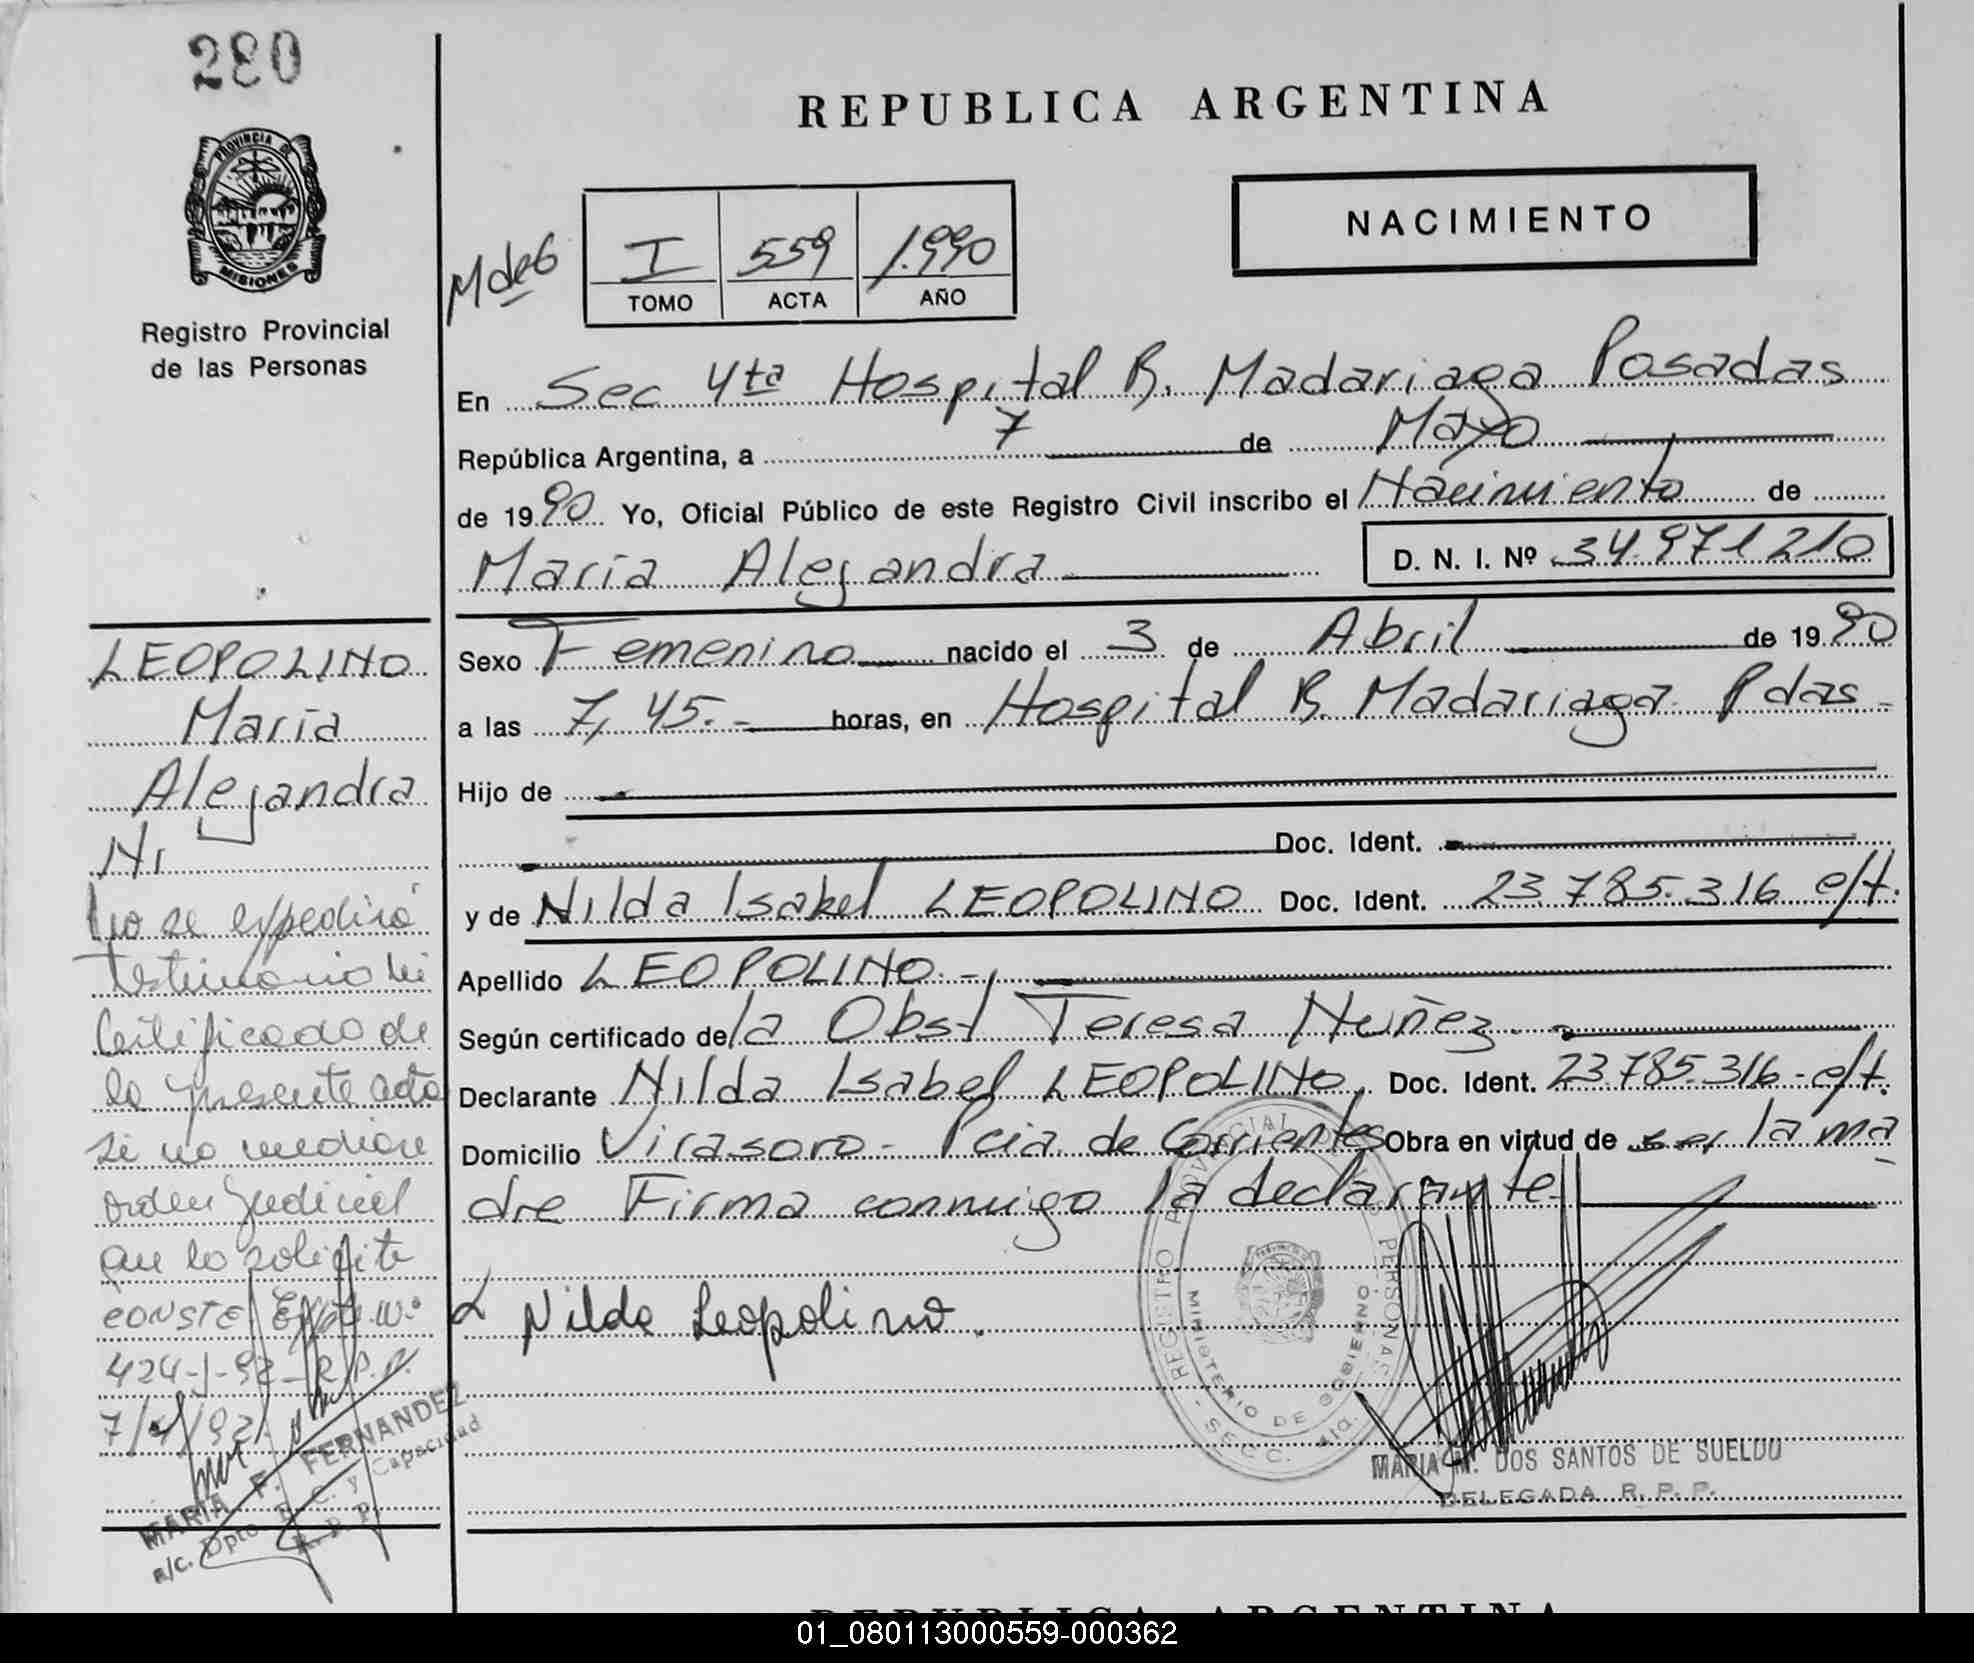 280
REPUBLICA ARGENTINA
PROVINCIA DE
MISIONES
Registro Provincial
de las Personas
NACIMIENTO
M de G
I 559 1.990
TOMO ACTA AÑO
En Sec 4ta Hospital R. Madariaga Posadas
República Argentina, a 7 de Mayo
de 1990 Yo, Oficial Público de este Registro Civil inscribo el Nacimiento de
María Alejandra D. N. I. Nº 34.971210
Sexo Femenino nacido el 3 de Abril de 1990
a las 7,45.- horas, en Hospital R. Madariaga Pdas-
Hijo de
Doc. Ident.
y de Nilda Isabel LEOPOLINO Doc. Ident. 23.785.316 e/t.
Apellido LEOPOLINO.-
Según certificado de la Obst Teresa Nuñez.
Declarante Nilda Isabel LEOPOLINO, Doc. Ident. 23785.316-e/t.
Domicilio Virasoro- Pcia. de Corrientes Obra en virtud de ser la ma
dre Firma conmigo la declarante
Nilda Leopolino.
REGISTRO PROVINCIAL DE LAS PERSONAS
MINISTERIO DE GOBIERNO
- SECC. 4ta. -
MARIA M. DOS SANTOS DE SUELDO
DELEGADA R. P. P.
LEOPOLINO
María
Alejandra
No se expedirá
testimonio ni
certificado de
la presente acta
si no mediare
orden judicial
que lo solicite
CONSTE Expte. Nº
424-J-92-R.P.P.
7/4/92
MARIA F. FERNANDEZ
a/c. Dpto. E. C. y Capacidad
R. P. P.
REPUBLICA ARGENTINA
01_080113000559-000362